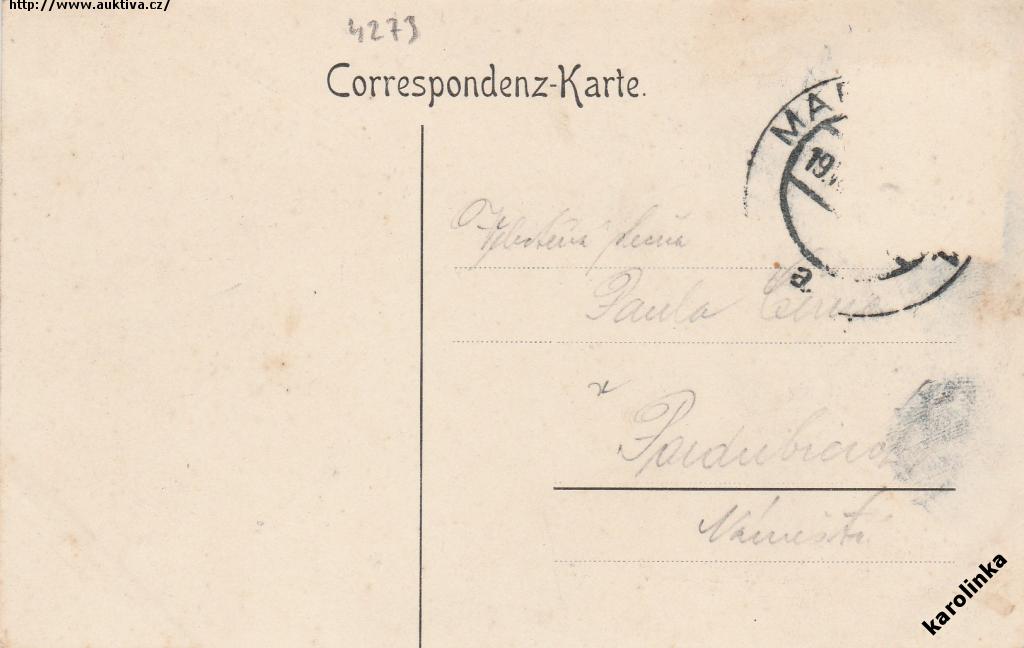 http://www.auktiva.cz/
4273
Correspondenz-Karte.
MAR
19
a
slečna
Paula Černá
v
Pardubicích
Náměstí
karolinka